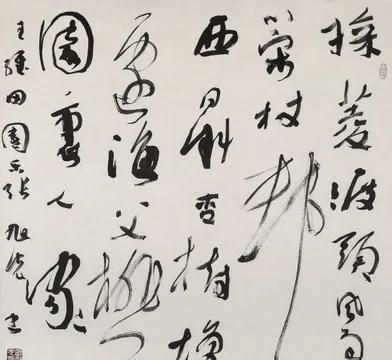 採菱渡頭風急
策杖林
西日斜杏樹壇
邊漁父桃花
源裏人家
王維田園樂張旭光書